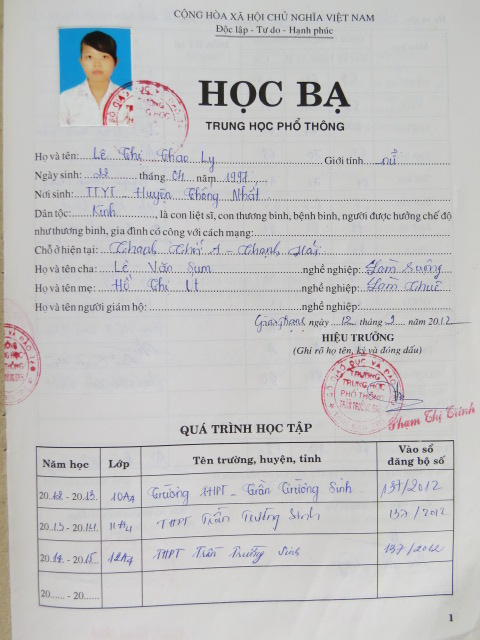 CỘNG HÒA XÃ HỘI CHỦ NGHĨA VIỆT NAM
Độc lập - Tự do - Hạnh phúc
HỌC BẠ
TRUNG HỌC PHỔ THÔNG
Họ và tên: Lê Thị Thảo Ly Giới tính nữ
Ngày sinh: 22 tháng 04 năm 1997
Nơi sinh: TTYT Huyện Thống Nhất
Dân tộc: Kinh, là con liệt sĩ, con thương binh, bệnh binh, người được hưởng chế độ
như thương binh, gia đình có công với cách mạng:
Chỗ ở hiện tại: Thạnh A - Thạnh Hải
Họ và tên cha: Lê Văn Sum nghề nghiệp: Làm ruộng
Họ và tên mẹ: Hồ Thị Út nghề nghiệp: Làm thuê
Họ và tên người giám hộ: nghề nghiệp:
ngày 12 tháng 9 năm 2012
HIỆU TRƯỞNG
(Ghi rõ họ tên, ký và đóng dấu)
SỞ GIÁO DỤC VÀ ĐÀO TẠO
TRƯỜNG
TRUNG HỌC
PHỔ THÔNG
Phạm Thị Trinh
QUÁ TRÌNH HỌC TẬP
Năm học Lớp Tên trường, huyện, tỉnh Vào sổ đăng bộ số
2012 - 2013 10A4 Trường THPT - Trần Trường Sinh 137/2012
2013 - 2014 11A4 THPT Trần Trường Sinh 137/2012
2014 - 2015 12A4 THPT Trần Trường Sinh 137/2012
20...... - 20......
1